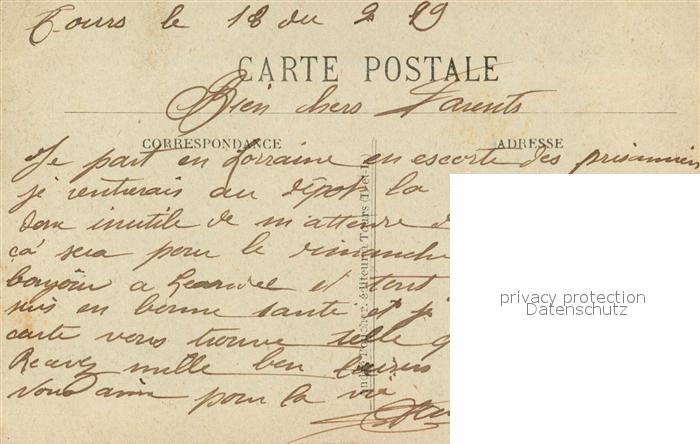 Tours le 18 du 2 19
CARTE POSTALE
Bien chers Parents
CORRESPONDANCE
ADRESSE
Je part en Lorraine en escorte des prisonniers
je renterais au dépot la
donc inutile de m'attendre d
ça sera pour le dimanche
bonjour a et tout
suis en bonne santé et j
carte vous trouve telle q
Recevez mille bon baisers
Vous aime pour la vie
éditeur à Tours
privacy protection
Datenschutz